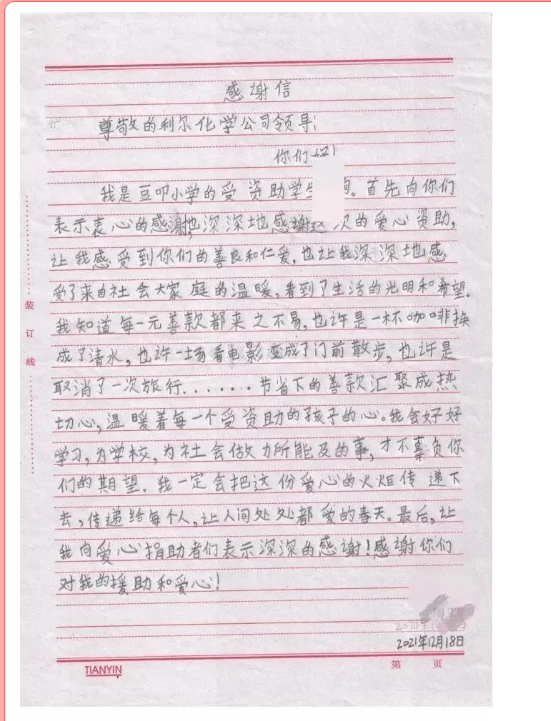 感谢信
尊敬的利尔化学公司领导:
你们
我是豆叩小学的受资助学生 。首先向你们
表示衷心的感谢,也深深地感谢这 次的爱心资助,
让我感受到你们的善良和仁爱,也让我深深地感
受了来自社会大家庭的温暖,看到了生活的光明和希望。
我知道每一元善款都来之不易,也许是一杯咖啡换
成了清水,也许一场看电影变成了门前散步,也许是
取消了一次旅行.......节省下的善款汇聚成热
切心,温暖着每一个受资助的孩子的心。我会好好
学习,为学校,为社会做力所能及的事,才不辜负你
们的期望。我一定会把这份爱心的火炬传递下
去,传递给每个人,让人间处处都爱的春天。最后,让
我向爱心捐助者们表示深深的感谢!感谢你们
对我的援助和爱心!
2021年12月18日
装
订
线
TIANYIN
第 页